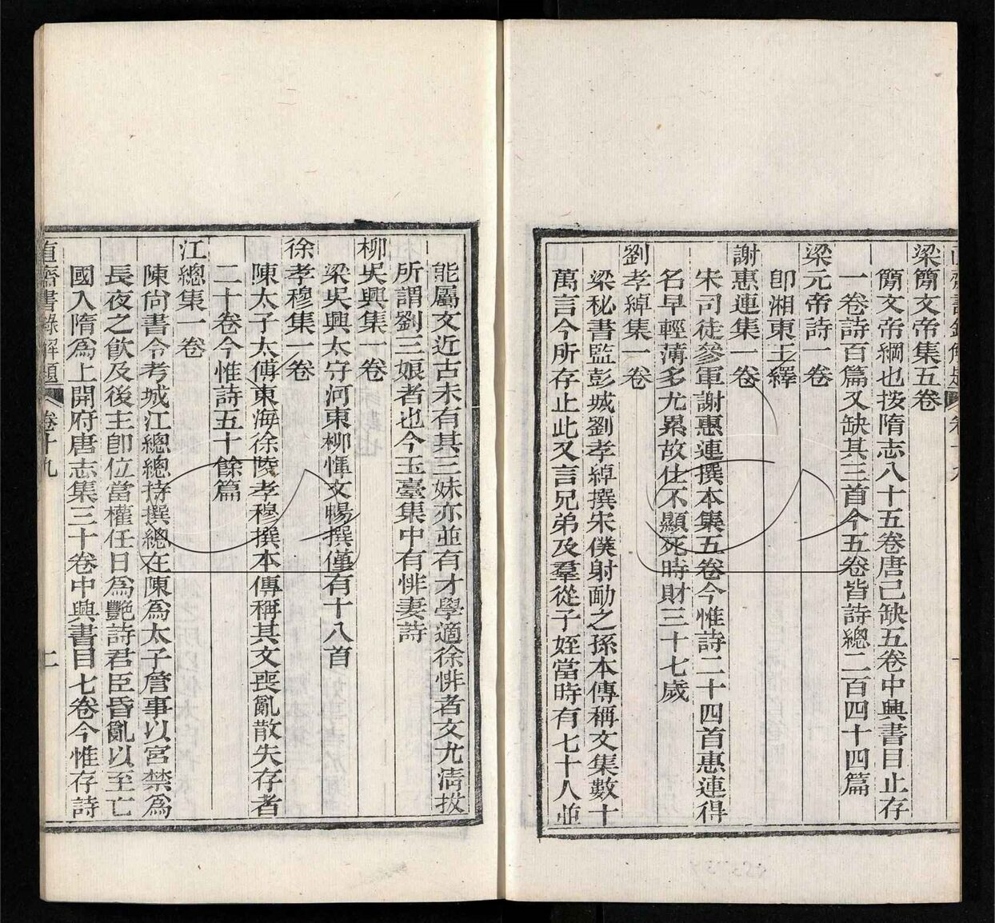 梁簡文帝集五卷
簡文帝綱也按隋志八十五卷唐已缺五卷中興書目止存
一卷詩百篇又缺其三首今五卷皆詩總二百四十四篇
梁元帝詩一卷
卽湘東王繹
謝惠連集一卷
宋司徒參軍謝惠連撰本集五卷今惟詩二十四首惠連得
名早輕薄多尤累故仕不顯死時財三十七歲
劉孝綽集一卷
梁秘書監彭城劉孝綽撰宋僕射勔之孫本傳稱文集數十
萬言今所存止此又言兄弟及羣從子姪當時有七十八並
能屬文近古未有其三妹亦並有才學適徐悱者文尤淸拔
所謂劉三娘者也今玉臺集中有悱妻詩
柳吳興集一卷
梁吳興太守河東柳惲文暢撰僅有十八首
徐孝穆集一卷
陳太子太傅東海徐陵孝穆撰本傳稱其文喪亂散失存者
二十卷今惟詩五十餘篇
江總集一卷
陳尙書令考城江總總持撰總在陳爲太子詹事以宮禁爲
長夜之飮及後主卽位當權任日爲艷詩君臣昏亂以至亡
國入隋爲上開府唐志集三十卷中興書目七卷今惟存詩
直齋書錄解題 卷十九 二